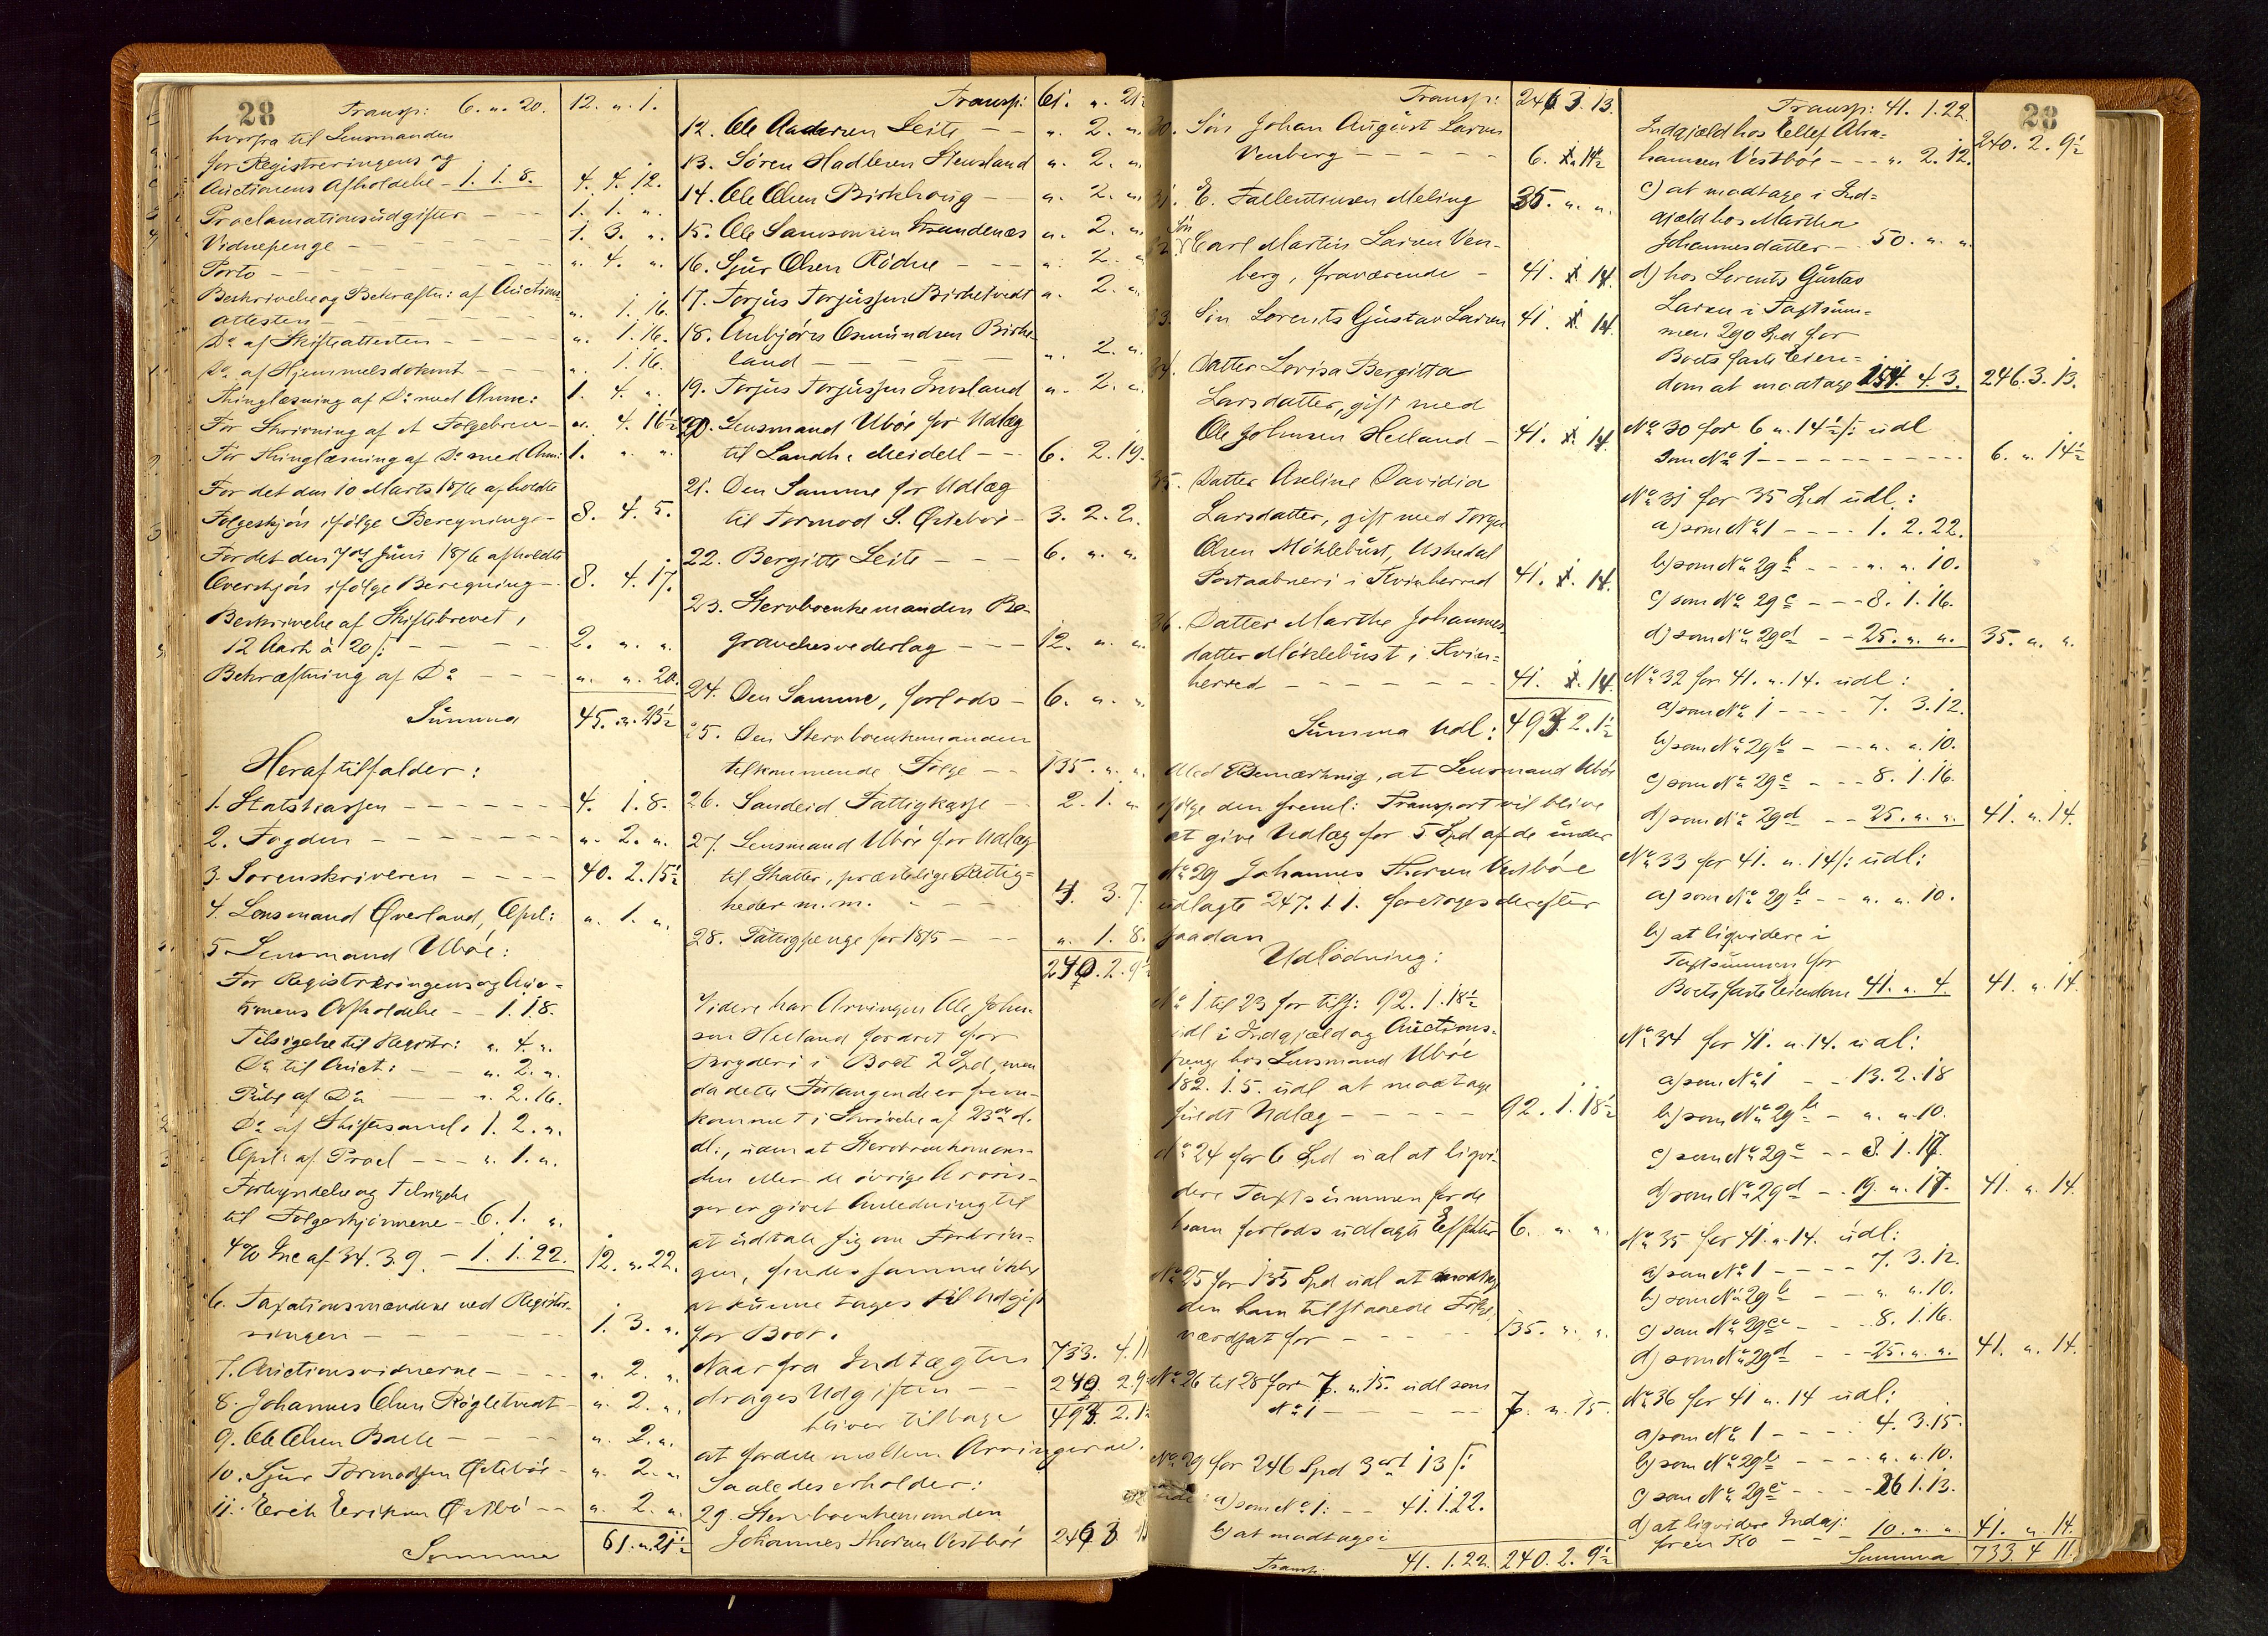 28
Transp: 6. „. 20. 12. „. 1.
hvorfra til Lensmanden
for Registreringens og
Auctionens Afholdelse - 1. 1. 8. 4. 4. 12.
Proclamationsudgifter - - - 1. 1. „.
Vidnepenge - - - - 1. 3. „.
Porto - - - - „. 4. „.
Beskrivelse og Bekræftn: af Auctions
attesten - - - - „. 1. 16.
Do af Skifteattesten - - - - „. 1. 16.
Do af Hjemmelsdokmt - - - „. 1. 16.
Thinglæsning af Do med Anm: 1. 4. „.
For Skrivning af et Følgebrev - „. 4. 16½
For Thinglæsning af Do med Anm: 1. „. „.
For det den 10 Marts 1876 afholdte
Følgeskjøn ifølge Beregning - 8. 4. 5.
For det den 7de Juni 1876 afholdte
Overskjøn ifølge Beregning - 8. 4. 17.
Beskrivelse af Skiftebrevet,
12 Aark à 20 /: - - - 2. „. „.
Bekræftning af Do - - - „. „. 20.
Summa 45. 3. 23½
Heraf tilfalder:
1. Statskassen - - - - - 4. 1. 8.
2. Fogden - - - - - - „. 2. „.
3. Sorenskriveren - - - - 40. 2. 15½
4. Lensmand Øverland, Opl: „. 1. „.
5. Lensmand Ubøe:
For Registreringens og Auc=
tionens Afholdelse - - 1. 1. 8.
Tilsigelse til Registr: „. 4. „.
Do til Auct: - - „. 2. „.
Publ af Do - - „. 2. 16.
Do af Skiftesaml. 1. 2. „.
Opl: af Procl - - - „. 1. „.
Forkyndelse og Tilsigelse
til Følgeskjønnene - 6. 1. „.
4% Inc af 34. 3. 9. - 1. 1. 22. 12. „. 22.
6. Taxationsmændene ved Registre-
ringen - - - - 1. 3. „.
7. Auctionsvidnerne - - - - „. 2. „.
8. Johannes Olsen Røgletvedt - „. 2. „.
9. Ole Olsen Bolle - - - - „. 2. „.
10. Sjur Tormodsen Ørtebøe - „. 2. „.
11. Erik Eriksen Ørtebø - - „. 2. „.
Summa 61. „. 21½
Transp: 61. „. 21½
12. Ole Andersen Leite - - „. 2. „.
13. Søren Hadlesen Stensland „. 2. „.
14. Ole Olsen Birkhoug - - „. 2. „.
15. Ole Samsonsen Strundenæs „. 2. „.
16. Sjur Olsen Rødne - - - „. 2. „.
17. Torjus Torjussen Birketvedt „. 2. „.
18. Anbjørn Osmundsen Birke
land - - - - - „. 2. „.
19. Torjus Torjussen Innsland „. 2. „.
20. Lensmand Ubøe for Udlæg
til Landh. Meidell - - 6. 2. 19.
21. Den Samme for Udlæg
til Tormod S. Ørtebøe - 3. 2. 2.
22. Bergitte Leite - - - 6. „. „.
23. Stervboenkemanden Be-
gravelsesvederlag - - - 12. „. „.
24. Den Samme, forlods - 6. „. „.
25. Den Stervboenkemanden
tilkommende Følge - - 135. „. „.
26. Sandeid Fattigkasse - 2. 1. „.
27. Lensmand Ubøe for Udlæg
til Skatter, præstelige Rettig-
heder m. m. - - - 4. 3. 7.
28. Fattigpenge for 1875 - - - „. 1. 8.
240. 2. 9½
Videre har Arvingen Ole John-
sen Helland fordret for
Røgderi i Boet 2 Spd, men
da dette Forlangende er frem-
kommet i Skrivelse af 23de d.
dl., uden at Stervboenkeman-
den eller de øvrige Arvin-
ger er givet Anledning til
at udtale sig om Fordrin-
gen, findes samme ikke
at kunne tages til Udgift
for Boet.
Naar fra Indtægten 733. 4. 11
drages Udgiften - - 240. 2. 9½
bliver tilbage 493. 2. 1½
at fordele mellem Arvingerne.
Saaledes erholder:
29. Stervboenkemanden
Johannes Thorsen Vestbøe 246 3 13
Transp: 246 3. 13.
30. Søn Johan August Larsen
Venberg - - - - - 6. „. 14½
31. E. Fallentinsen Meling 35. „. „.
32. Søn Carl Martin Larsen Ven-
berg, fraværende - 41. „. 14.
33. Søn Lorents Gustav Larsen 41. „. 14.
34. Datter Lovisa Bergitta
Larsdatter, gift med
Ole Johnsen Helland - 41. „. 14.
35. Datter Axeline Davidia
Larsdatter, gift med Torger
Olsen Møhlebust, Uskedal
Postaabneri i Kvinherred 41. „. 14.
36. Datter Marthe Johannes-
datter Møhlebust i Kvin=
herred - - - - - - 41. „. 14.
Summa Udl: 493. 2. 1½
Med Bemærkning, at Lensmand Ubøe
ifølge den freml: Transport vil blive
at give Udlæg for 5 Spd af de under
No 29 Johannes Thorsen Vestbøe
udlagte 247. 1. 1. foretages derefter
saadan
Udlodning:
No 1 til 23 for tils: 92. 1. 18½
udl i Indgjæld og Auctions-
penge hos Lensmand Ubøe
182. 1. 5. udl at modtage
fuldt Udlæg - - - - 92. 1. 18½
No 24 for 6 Spd udl at liqvi-
dere Taxtsummen for de
ham forlods udlagte Effekter 6. „. „.
No 25 for 135 Spd udl at modtage
den ham tilstaaede Følge
værdsat for - - - - 135. „. „.
No 26 til 28 for 7. „. 15. udl som
No 1 - - - - - 7. „. 15.
No 29 for 246 Spd 3 ort 13 /:
udl: a) som No 1: - - 41. 1. 22.
b) at modtage i
Transp: 41. 1. 22. 240. 2. 9½
28
Transp: 41. 1. 22. 240. 2. 9½
Indgjæld hos Ellef Abra=
hamsen Vestbøe - - - „. 2. 12.
c) at modtage i Ind=
gjæld hos Martha
Johannesdatter - - 50. „. „.
d) hos Lorents Gustav
Larsen i Taxtsum=
men 290 Spd for
Boets faste Eien=
dom at modtage 154. 4. 3. 246. 3. 13.
No 30 for 6 „. 14½ /: udl
som No 1 - - - - - 6. „. 14½
No 31 for 35 Spd udl.:
a) som No 1 - - - - 1. 2. 22.
b) som No 29 b - - - „. „. 10.
c) som No 29 c - - - 8. 1. 16.
d) som No 29 d - - 25. „. „. 35. „. „.
No 32 for 41. „. 14. udl:
a) som No 1 - - - - 7. 3. 12.
b) som No 29 b - - - „. „. 10.
c) som No 29 c - - - 8. 1. 16.
d) som No 29 d - - 25. „. „. 41. „. 14.
No 33 for 41. „. 14 /: udl:
a) som No 29 b - - „. „. 10.
b) at liqvidere i
Taxtsummen for
Boets faste Eiendom 41. „. 4. 41. „. 14.
No 34 for 41. „. 14. udl:
a) som No 1 - - 13. 2. 18
b) som No 29 b - „. „. 10.
c) som No 29 c - - 8. 1. 16.
d) som No 29 d - - 19. „. 17. 41. „. 14.
No 35 for 41. „. 14. udl:
a) som No 1 - - - - 7. 3. 12.
b) som No 29 b - - - „. „. 10.
c) som No 29 c - - - 8. 1. 16.
d) som No 29 d - - - 25. „. „. 41. „. 14.
No 36 for 41 „. 14 udl:
a) som No 1 - - - - 4. 3. 15.
b) som No 29 b - - - - „. „. 10.
c) som No 29 c - - - - 26 1. 13.
d) at liqvidere Indgj:
for en Ko - - 10. „. „. 41. „. 14.
Summa 733. 4 11.